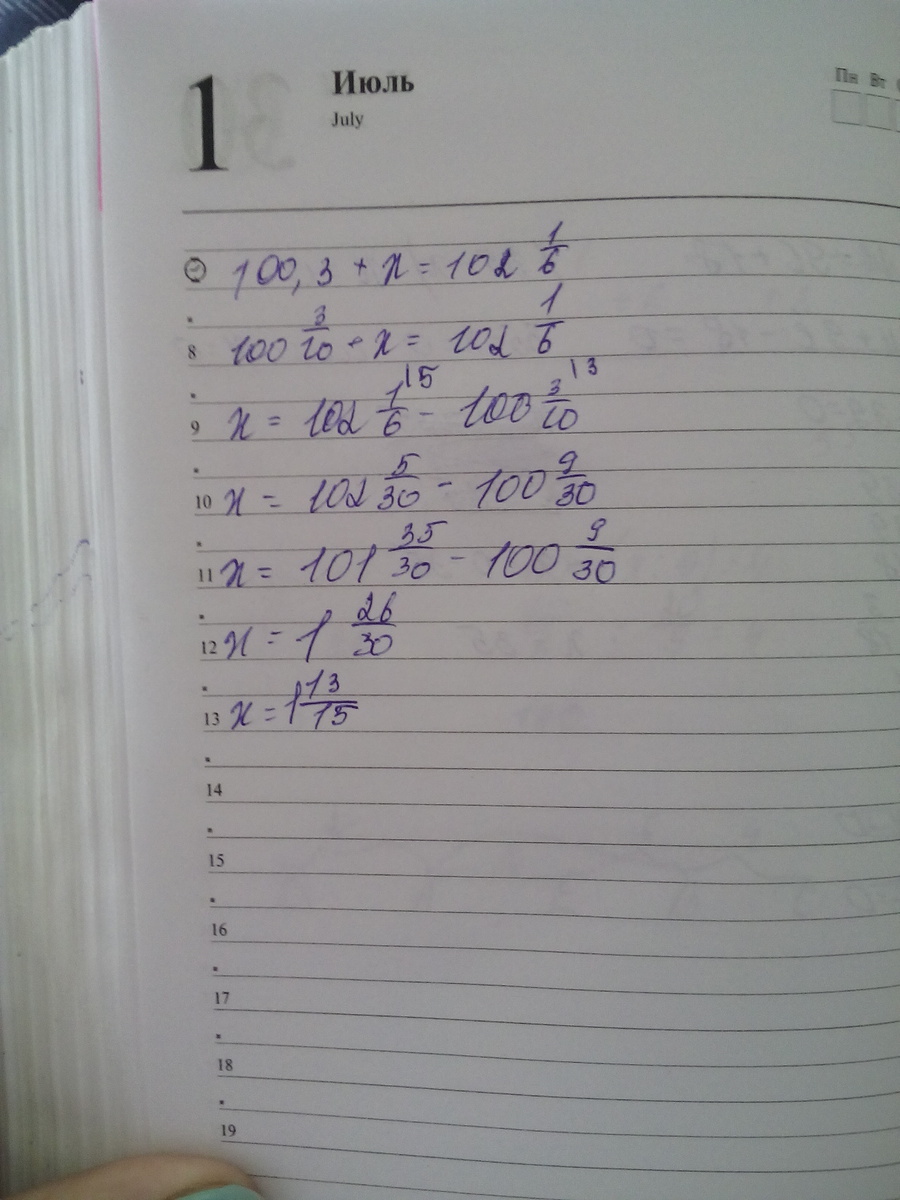 1
Июль
July
Пн Вт
100,3 + x = 102 1/6
8 100 3/10 + x = 102 1/6
9 x = 102 1/6 \5 - 100 3/10 \3
10 x = 102 5/30 - 100 9/30
11 x = 101 35/30 - 100 9/30
12 x = 1 26/30
13 x = 1 13/15
14
15
16
17
18
19